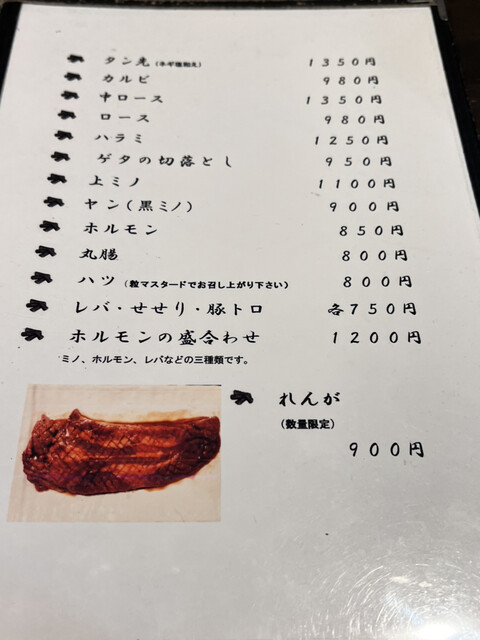 タン先(ネギ塩和え) 1350円
カルビ 980円
中ロース 1350円
ロース 980円
ハラミ 1250円
ゲタの切落とし 950円
上ミノ 1100円
ヤン(黒ミノ) 900円
ホルモン 850円
丸腸 800円
ハツ(粒マスタードでお召し上がり下さい) 800円
レバ・せせり・豚トロ 各750円
ホルモンの盛合わせ 1200円
ミノ、ホルモン、レバなどの三種類です。
れんが
(数量限定)
900円